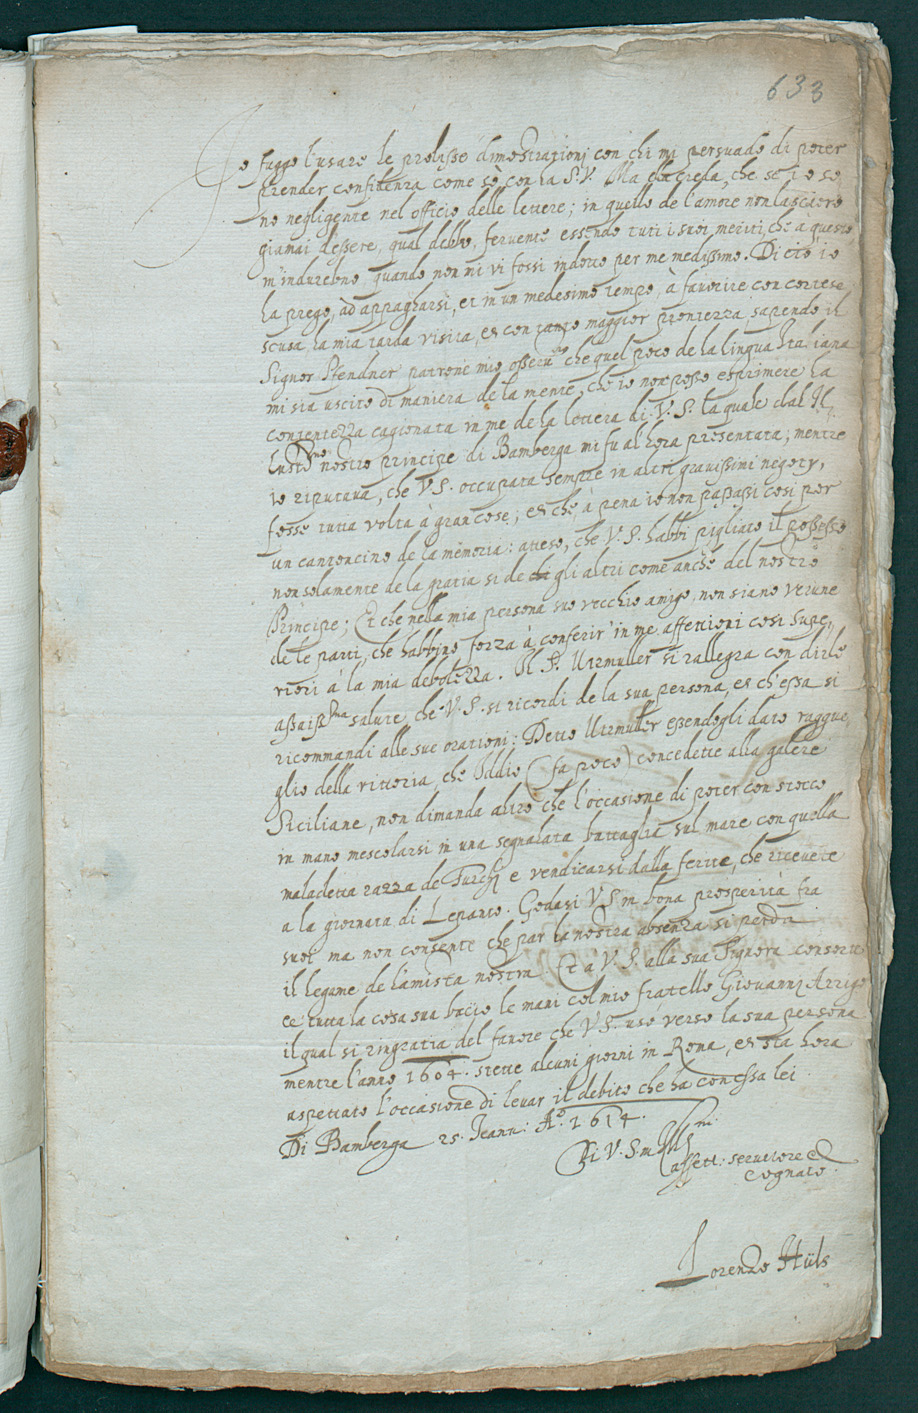 633
Io fuggo l'usare le prolisse dimostrationj con chi mi persuado di poter
prender confidenza come fò con la S.V. Ma ella creda, che se io so=
no negligente nel officio delle lettere; in quello de l'amore non lasciero
giamai d'essere, qual debbo, fervente essendo tuti i suoi meriti, che à questo
m'indurebno, quando non mi vi fossi indotto per me medissimo. Di ciò io
la prego, ad appagharsi, et in un medesimo tempo, à favorire con cortese
scusa la mia tarda visita, et con tanto maggior prontezza sapendo il
Signor Stendner patrone mio osseru.mo che quel poco de la lingua Italiana
mi sia uscito di maniera de la mente, che io non posso esprimere la
contentezza cagionata in me de la lettera di V.S. la quale dal Il=
lust.mo nostro principe di Bamberga mi fu al hora presentata; mentre
io riputava, che V.S. occupata sempre in altri gravissimi negoty,
fosse tutta volta à gran cose, et che à pena io non passassi cosi per
un cantoncino de la memoria: atteso, che V.S. habbi pigliato il possesso
non solamente de la gratia si de gli altri come anche del nostro
Principe; Et che nella mia persona suo vecchio amigo, non siano verune
de le parti, che habbino forza à conferir' in me affettioni cosi supe,
riori à la mia debolezza. Il S. Utzmuller si rallegra con dirle
assaiss.ma salute, che V.S. si ricordi de la sua persona, et ch'essa si
ricommandi alle sue orationi: Detto Utzmuller essendogli dato raggua,
glio della vittoria, che Iddio (fa poco) concedette alla galere
Siciliane, non dimanda altro che l'occasione di poter con stocco
in mano mescolarsi in una segnalata battaglia sul mare con quella
maladetta razza de Turchj e vendicarsi dalla ferite, che ricevete
a la giornata di Lepanto. Godasi V.S. in bona prosperità fra
suoi ma non consente che par la nostra absenza si perda
il legame de l'amista nostra. Et à V.S. alla sua Signora consorte
et tutta la cosa sua bacio le mani col mio fratello Giovannj Arrigo
il qual si ringratia del favore che V.S. uso verso la sua persona
mentre l'anno 1604. stette alcuni giorni in Roma, et sta hora
aspettato l'occasione di levar il debito che ha con essa lei
Di Bamberga 25. Jenn: A.o 1614.
Di V.S. m. Ill.
affett. servitore et
Cognato.
Lorenzo Hüls